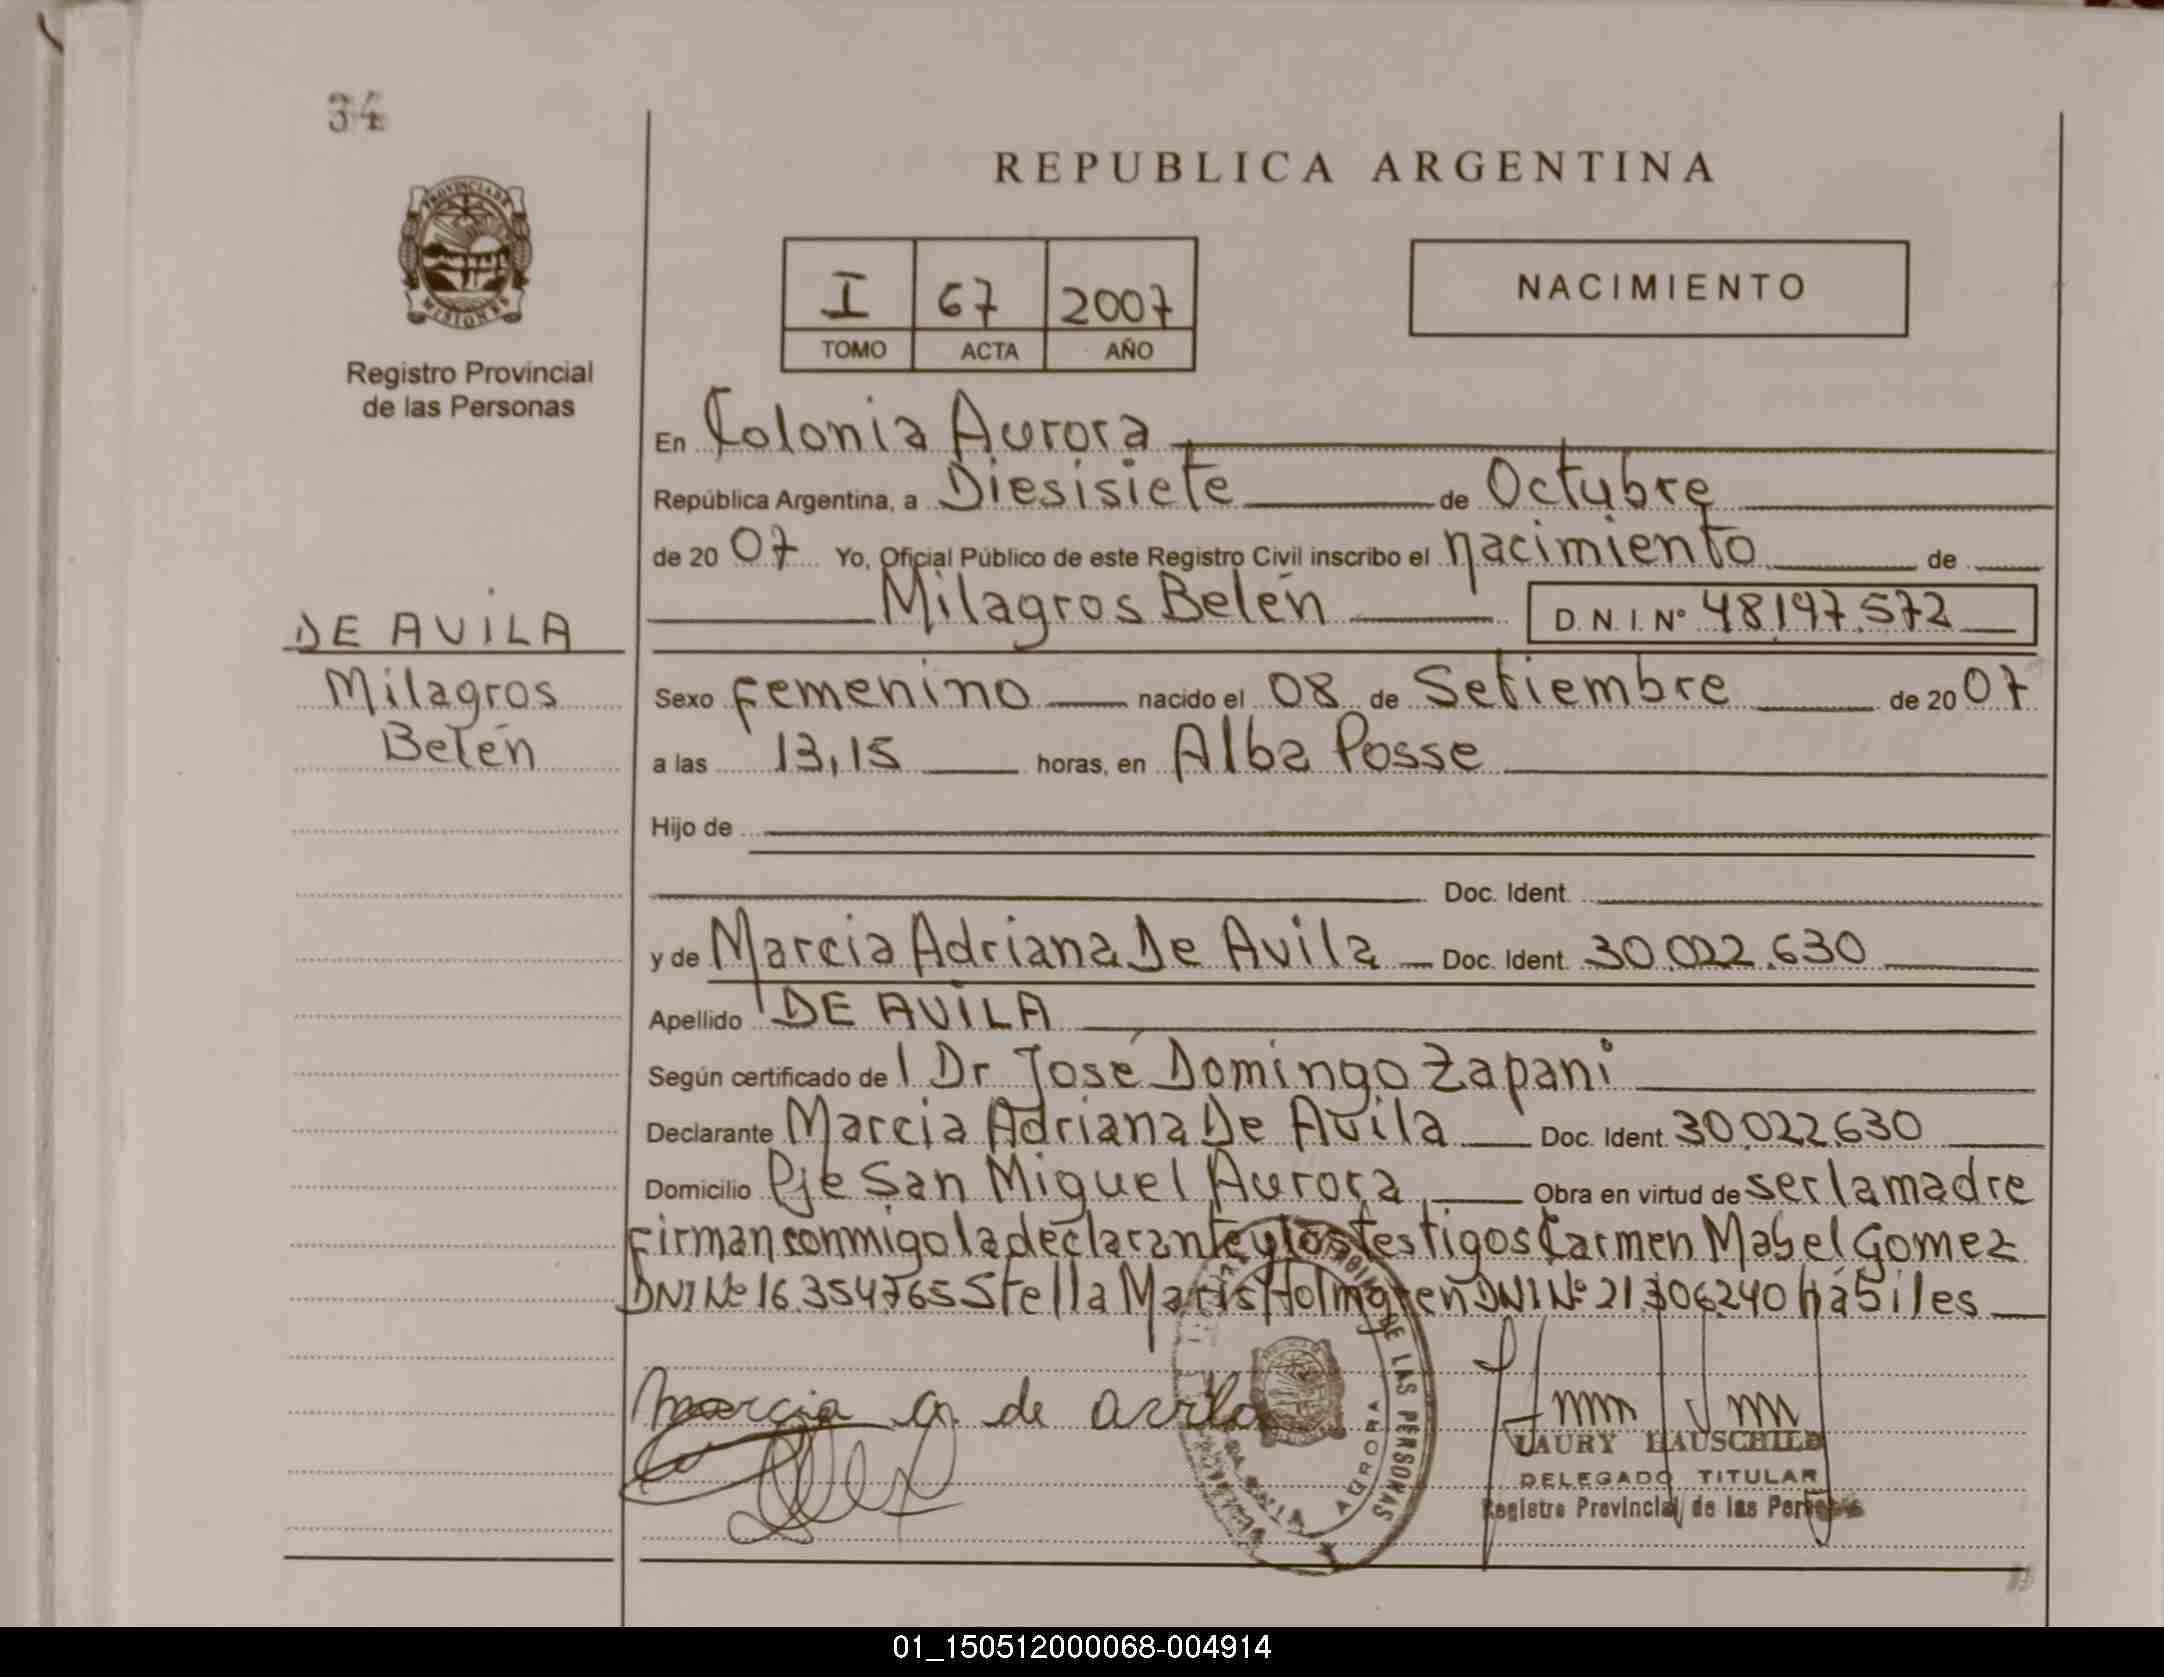 34
REPUBLICA ARGENTINA
PROVINCIA DE
MISIONES
Registro Provincial
de las Personas
I 67 2007
TOMO ACTA AÑO
NACIMIENTO
En Colonia Aurora
República Argentina, a Diesisiete de Octubre
de 20 07 Yo, Oficial Público de este Registro Civil inscribo el nacimiento de
Milagros Belén D.N.I. Nº 48.197.572
DE AVILA
Milagros
Belén
Sexo femenino nacido el 08 de Setiembre de 20 07
a las 13,15 horas, en Alba Posse
Hijo de
Doc. Ident.
y de Marcia Adriana De Avila Doc. Ident. 30.022.630
Apellido DE AVILA
Según certificado de l Dr José Domingo Zapani
Declarante Marcia Adriana De Avila Doc. Ident. 30.022.630
Domicilio Pje San Miguel Aurora Obra en virtud de ser la madre
Firman conmigo la declarante y los testigos Carmen Mabel Gomez
DNI Nº 16.354.765 Stella Maris Holmgren DNI Nº 21.306.240 hábiles
Marcia A. de Avila
DE LAS PERSONAS
AURORA
LAURY HAUSCHILD
DELEGADO TITULAR
Registro Provincial de las Personas
01_150512000068-004914